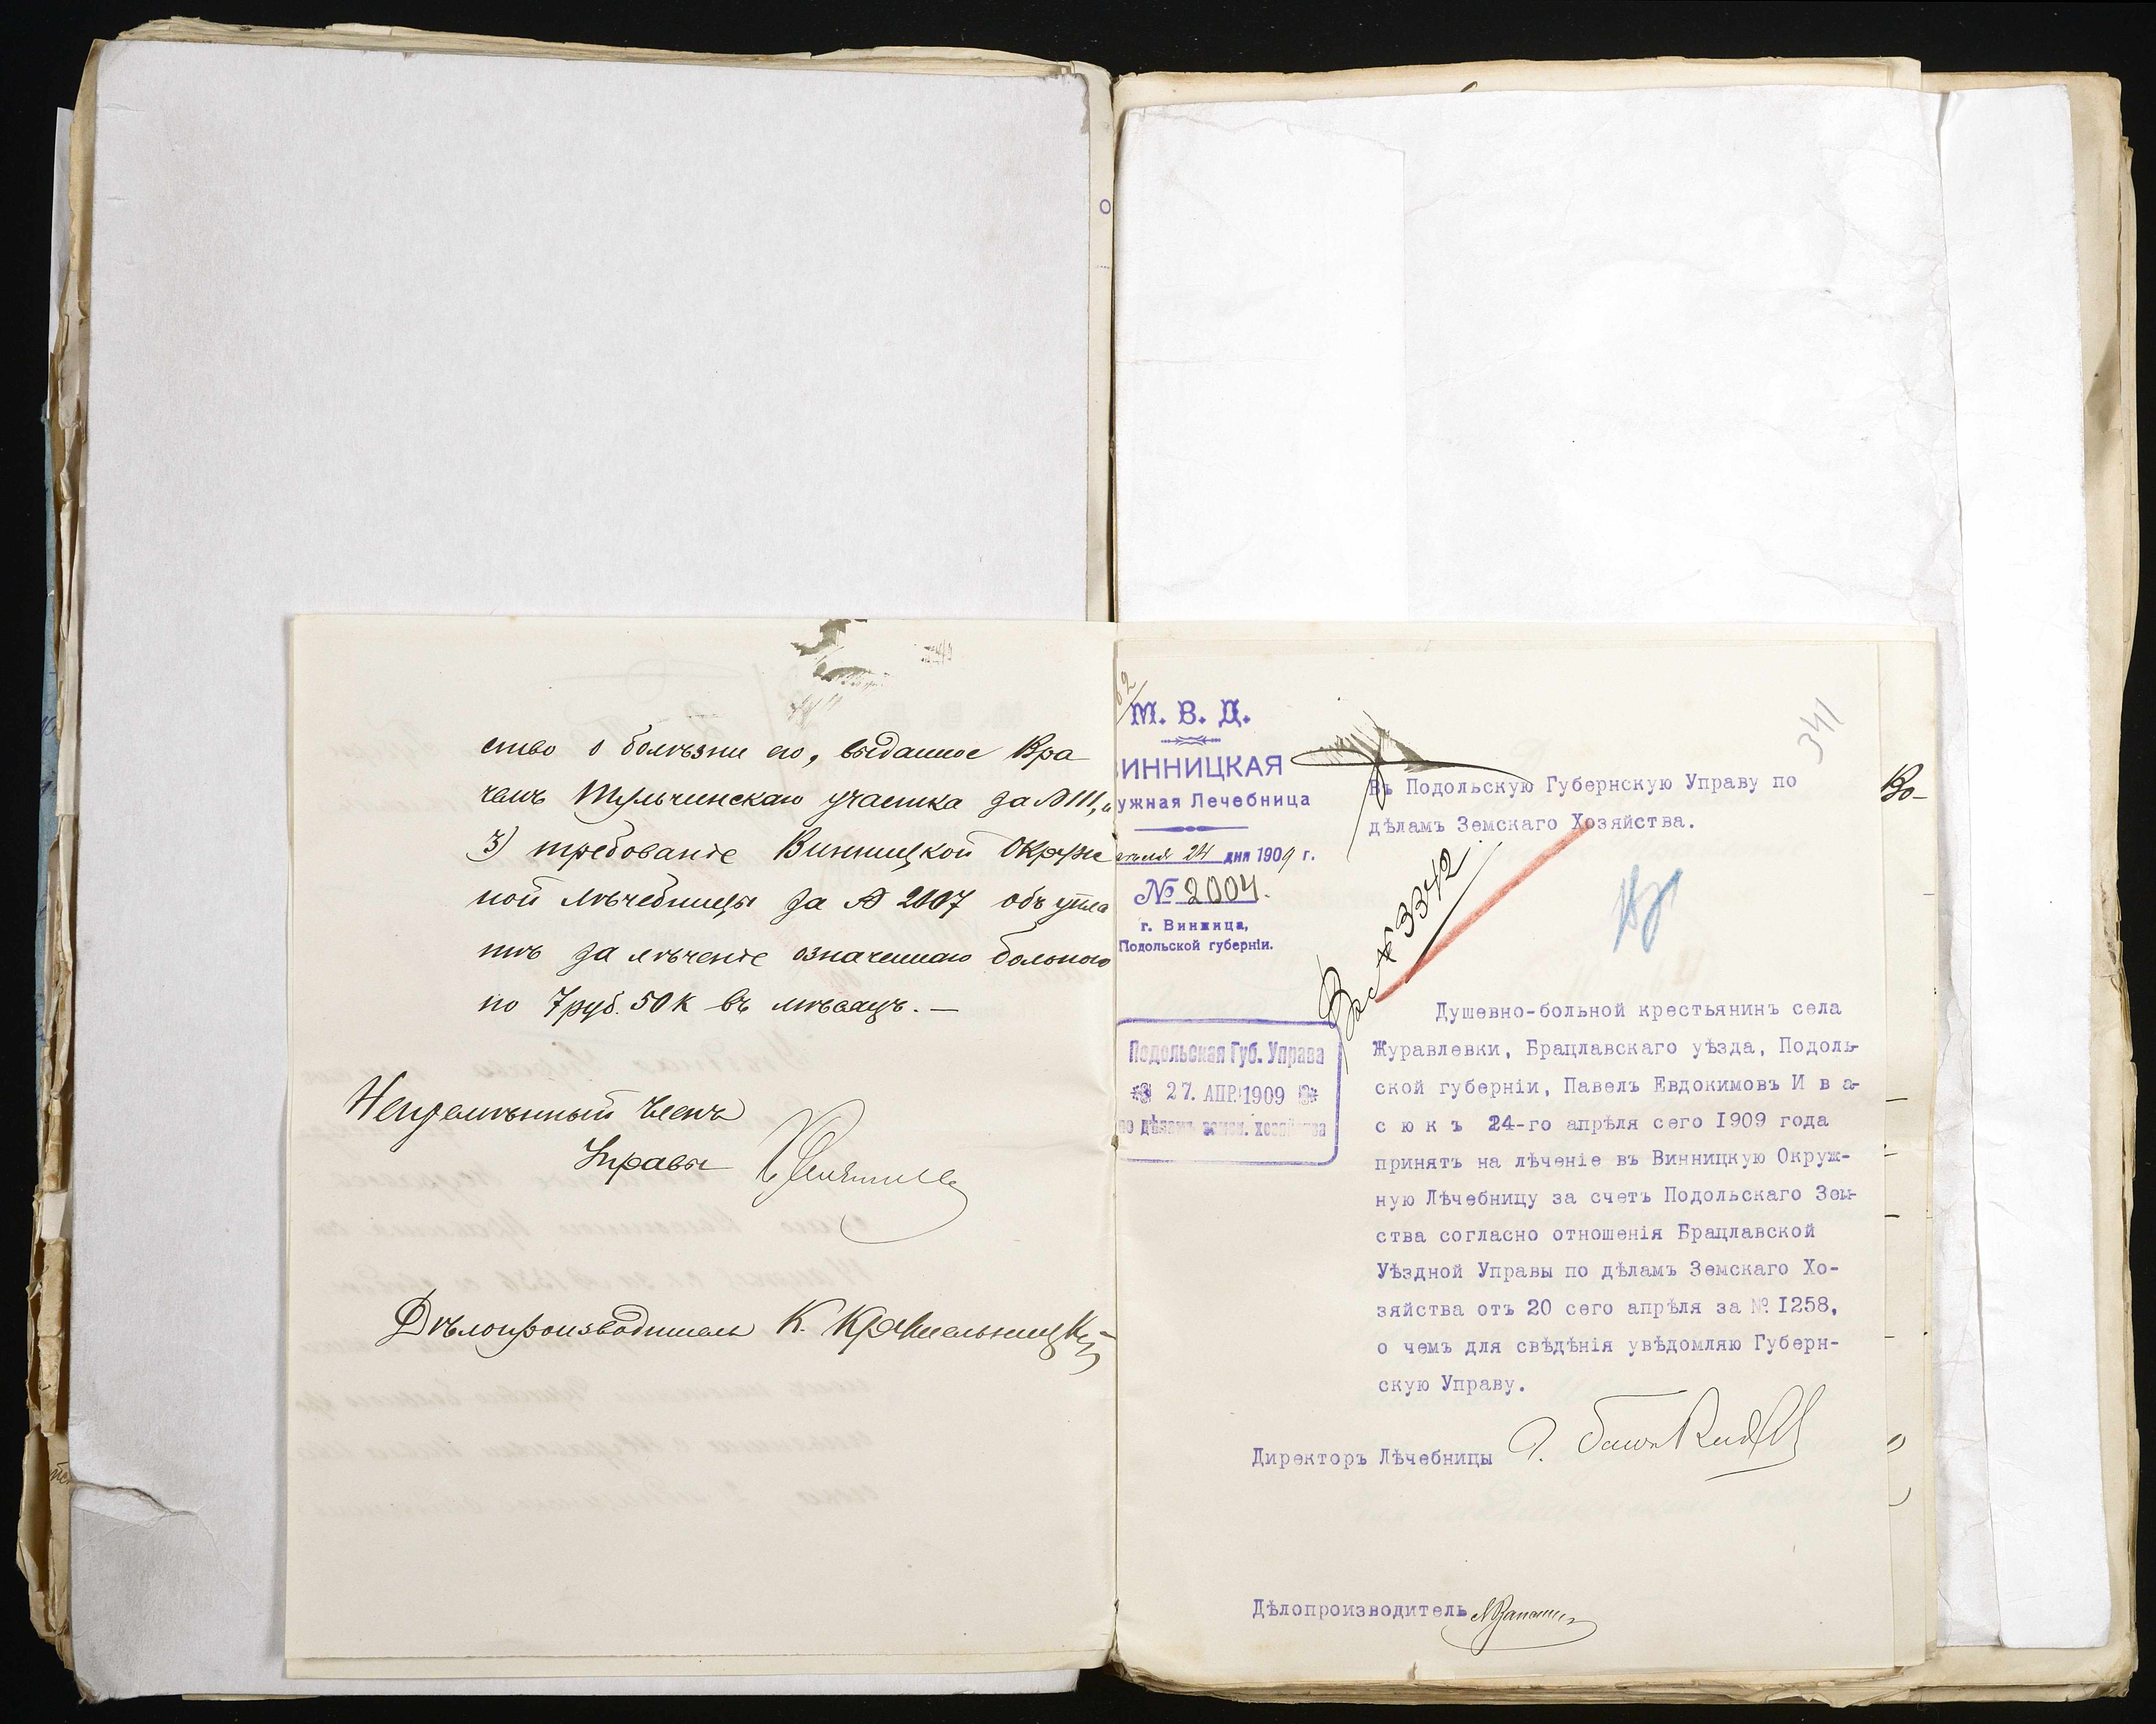 ство о болѣзни его, выданное Вра
чемъ Тульчинскаго участка за № 111, и
3) требованіе Винницкой Окруж
ной Лѣчебницы за № 2007 объ упла
тѣ за лѣченіе означеннаго больного
по 7 руб. 50 к въ мѣсяцъ. —
Непремѣнный Членъ
Управы
Дѣлопроизводитель К.
341
М. В. Д.
ИННИЦКАЯ
ужная Лечебница
24 дня 1909 г.
№ 2004.
г. Винница,
Подольской губерніи.
Въ Подольскую Губернскую Управу по
дѣламъ Земскаго Хозяйства.
№ 3342
Подольская Губ. Управа
27. АПР. 1909
по дѣламъ земск. хозяйства
Душевно-больной крестьянинъ села
Журавлевки, Брацлавскаго уѣзда, Подоль-
ской губерніи, Павелъ Евдокимовъ И в а-
с ю к ъ 24-го апрѣля сего 1909 года
принятъ на лѣченіе въ Винницкую Окруж-
ную Лѣчебницу за счетъ Подольскаго Зем-
ства согласно отношенія Брацлавской
Уѣздной Управы по дѣламъ Земскаго Хо-
зяйства отъ 20 сего апрѣля за № 1258,
о чемъ для свѣдѣнія увѣдомляю Губерн-
скую Управу.
Директоръ Лѣчебницы
Дѣлопроизводитель
Во-